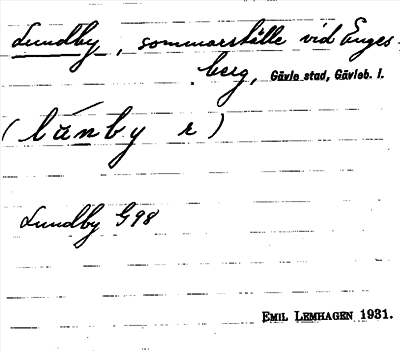 Lundby, sommarställe vid Enges-
berg, Gävle stad, Gävleb. l.
(lúnby r)
Lundby G98
EMIL LEMHAGEN 1931.